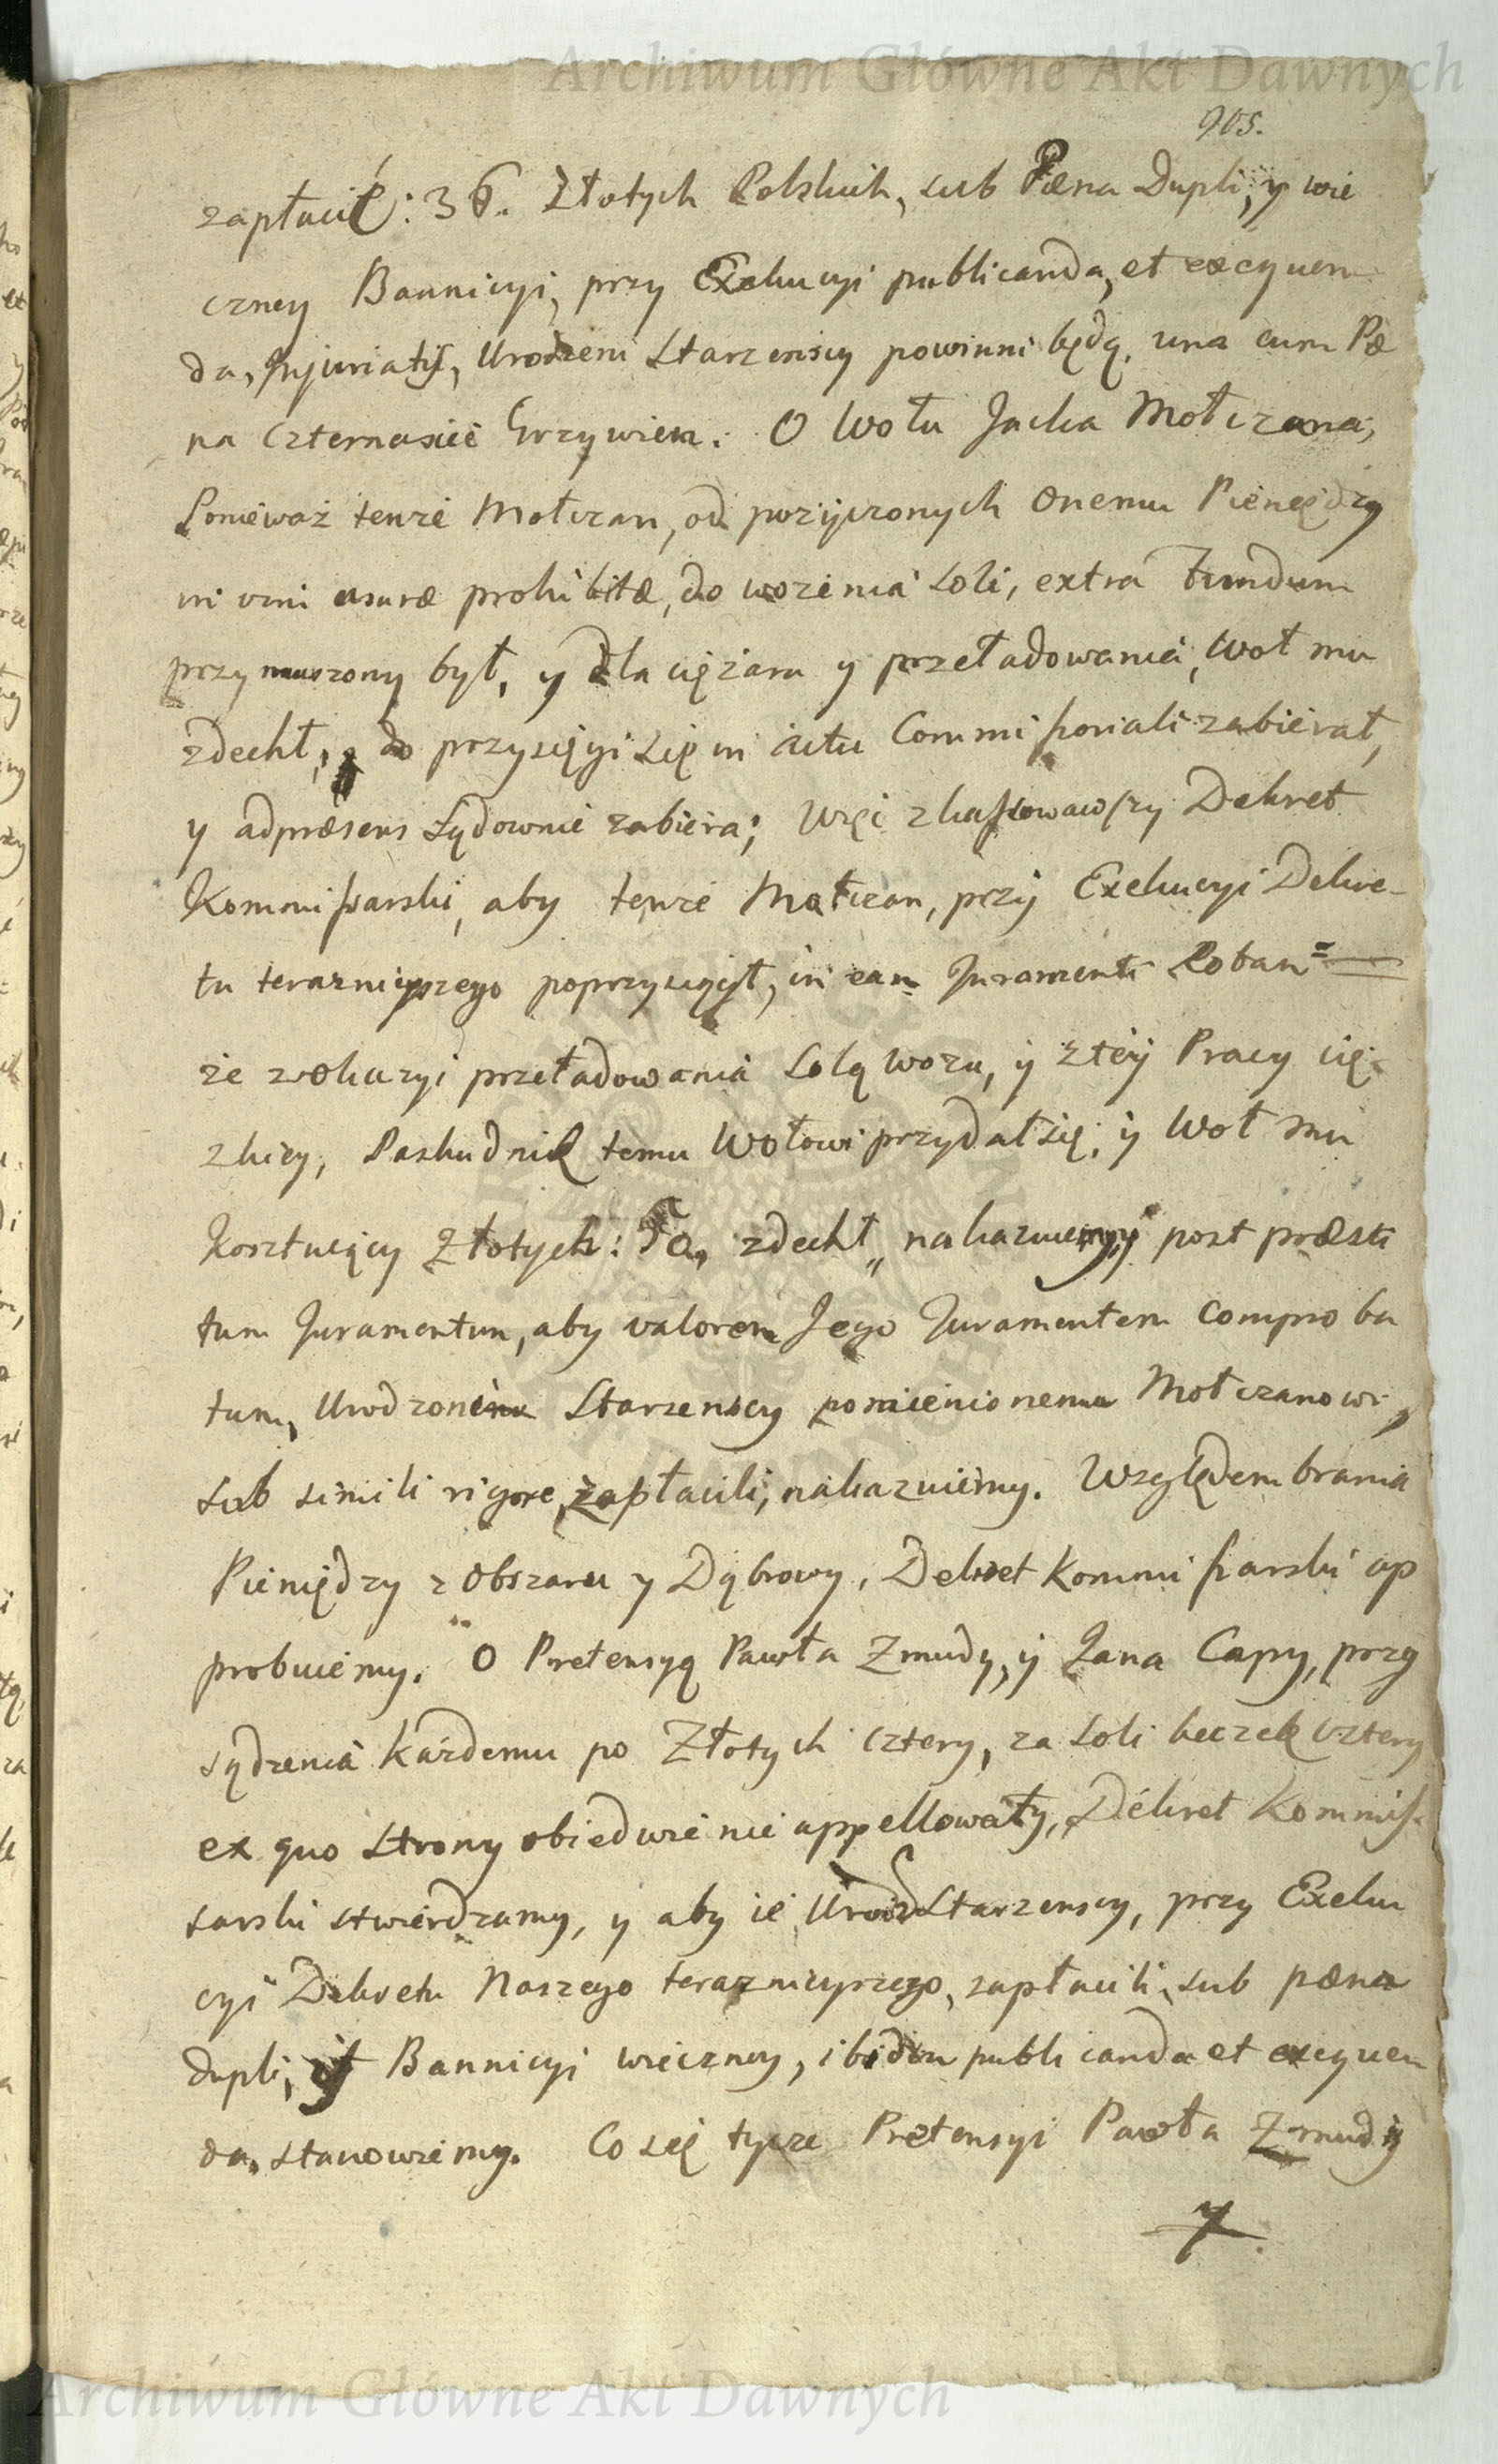 Archiwum Główne Akt Dawnych
905.
zapłacić: 36. Złotych Polskich, sub Pæna Dupli, y wie
czney Bannicyi, przy Exekucyi publicanda, et exequen
da, Injuriatis, Urodzeni Starzenscy powinni będą, una cum Pæ
na Czternascie Grzywien. O Wołu Jacka Mołczana,
Ponieważ tenze Mołczan, od pozyczonych Onemu Pieniędzy
in vim usuræ prohibitæ, do wozenia Soli, extra Fundum
przymuszony był, y dla ciężaru y przeładowania, Woł mu
zdechł, do przysięgi się in actu Commissoriali zabierał,
y adpræsens Sądownie zabiera; Więc zkassowawszy Dekret
Kommissarski, aby tenze Mołczan, przy Exekucyi Dekre-
tu teraznieyszego poprzysiągł, in eam Juramenti Rotam
że z okazyi przeładowania Solą wozu, y z tey Pracy cię-
zkiey, Paskudnik temu Wołowi przydał się, y Woł mu
Kosztuiący Złotych: 70, zdechł„ nakazuiemy, y post præsti
tum Juramentum, aby valorem Jego Juramentem comproba
tum, Urodzoni Starzenscy pomienionemu Mołczanowi,
sub simili rigore, zapłacili, nakazuiemy. Względem brania
Pieniędzy z Obszaru y Dąbrowy, Dekret Kommissarski ap
probuiemy. O Pretensyą Pawła Zmudy, y Jana Capy, przy
sądzenia Każdemu po Złotych cztery, za Soli beczek cztery
ex quo Strony obiedwie nie appellowały, Dekret Kommis-
sarski stwierdzamy, y aby ie Urodz Starzenscy, przy Exeku
cyi Dekretu Naszego teraznieyszego, zapłacili, sub pæna
dupli, y Bannicyi wieczney, ibidem publicanda et exequen
da, stanowiemy. Co się tycze Pretensyi Pawła Zmudy
Archiwum Główne Akt Dawnych